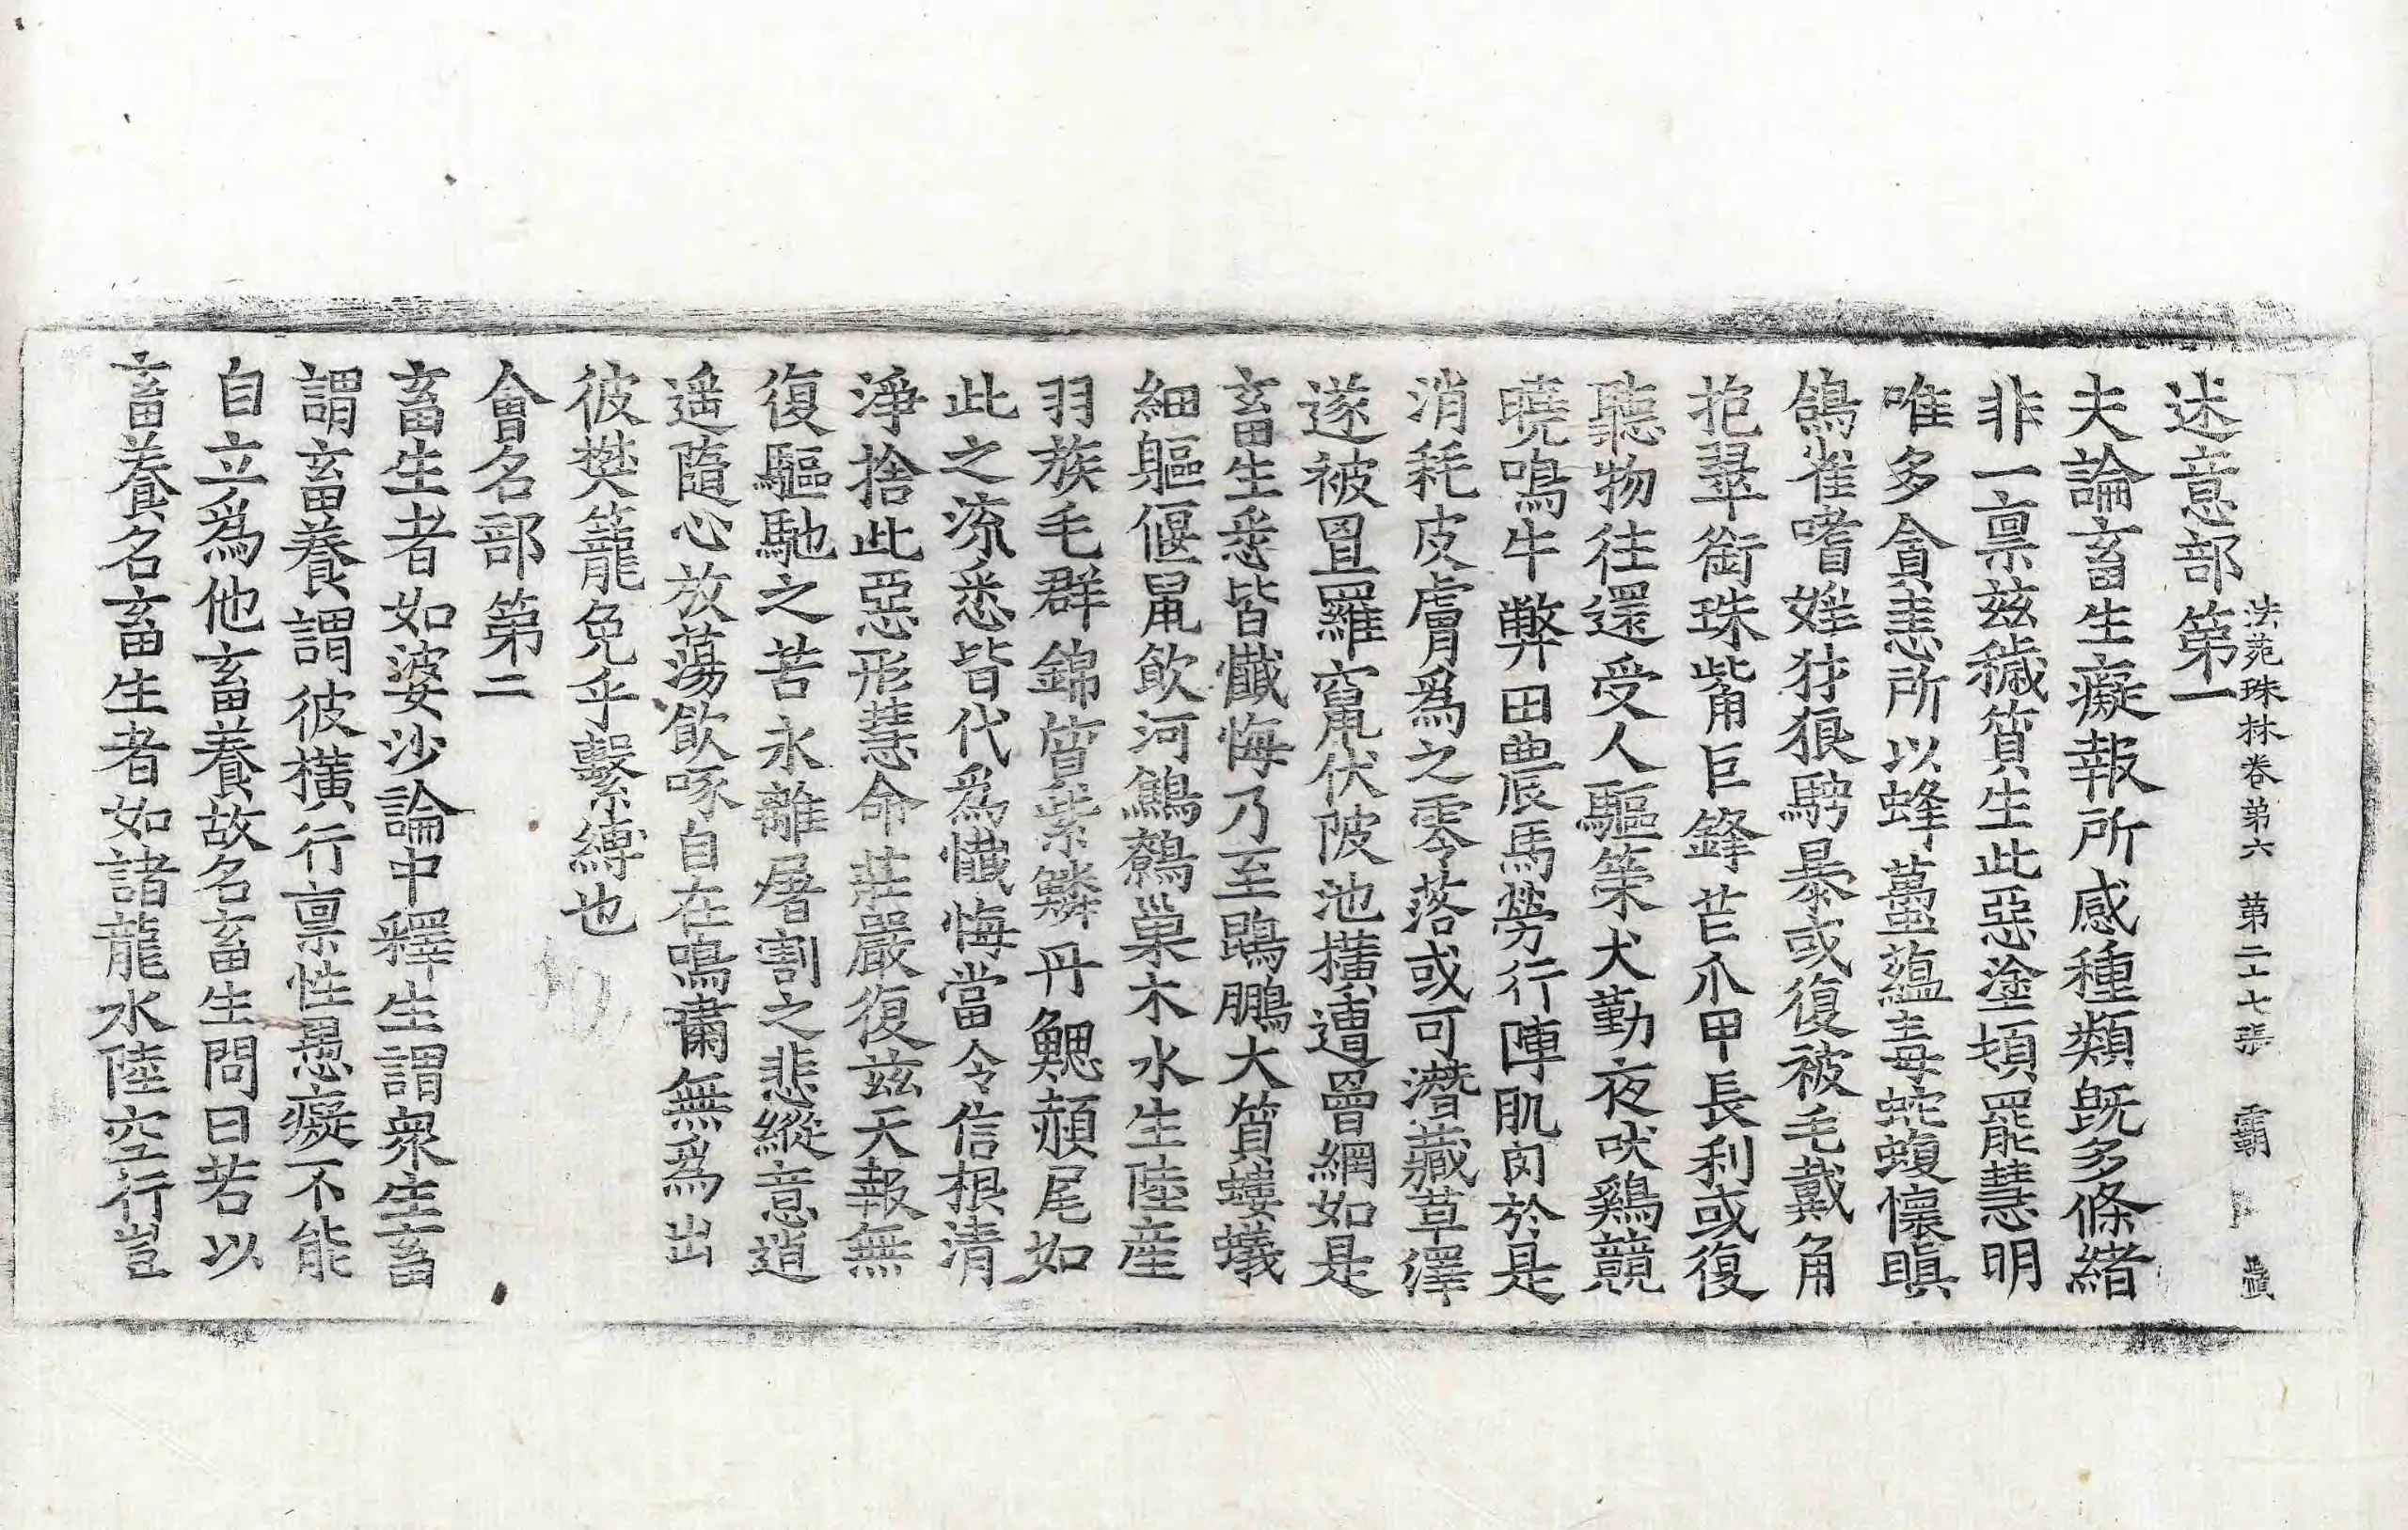 法苑珠林卷第六 第二十七張 霸
述意部第一
夫論畜生癡報所感種類旣多條緖
非一禀玆穢質生此惡塗頓罷慧明
唯多貪恚所以蜂蠆蘊毒蛇蝮懷瞋
鴿雀嗜婬犲狼騁暴或復被毛戴角
抱翠銜珠觜角巨鋒芒爪甲長利或復
聽物往還受人驅策犬勤夜吠鷄競
曉鳴牛弊田農馬勞行陣肌肉於是
消耗皮膚爲之零落或可潛藏草澤
遂被罝羅竄伏陂池橫遭罾網如是
畜生悉皆懺悔乃至鵾鵬大質螻蟻
細軀偃鼠飮河鷦鷯巢木水生陸産
羽族毛群錦質紫鱗丹鰓赬尾如
此之流悉皆代爲懺悔當令信根淸
淨捨此惡形慧命莊嚴復玆天報無
復驅馳之苦永離屠割之悲縱意逍
遥隨心放蕩飮啄自在鳴嘯無爲出
彼樊籠免乎繫縛也
會名部第二
畜生者如婆沙論中釋生謂衆生畜
謂畜養謂彼橫行禀性愚癡不能
自立爲他畜養故名畜生問曰若以
畜養名畜生者如諸龍水陸空行豈